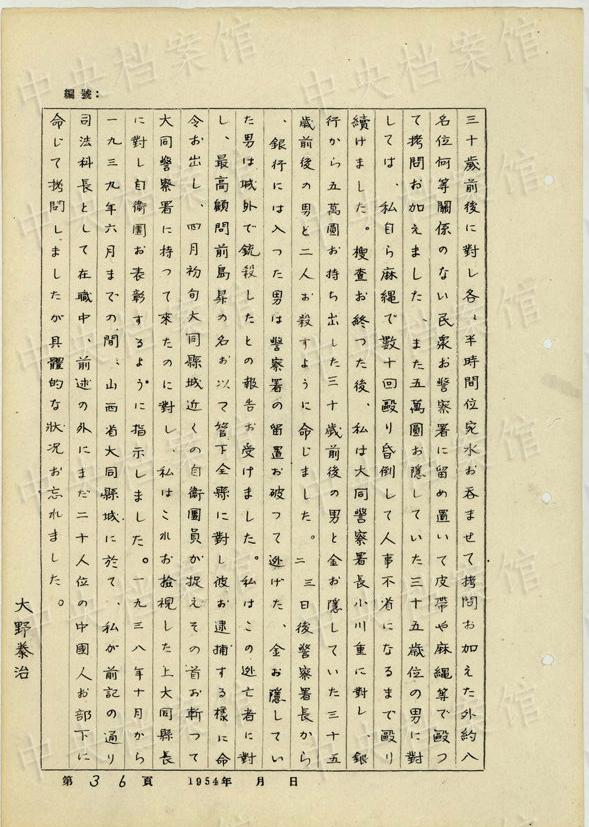 編號：
三十歳前後に対し各〻半時間位宛水お呑ませて拷問お加えた外約八
名位何等関係のない民衆お警察署に留め置いて皮帶や麻縄等で毆つ
て拷問お加えました、また五萬圓お隠していた三十五歳位の男に対
しては、私自ら麻縄で数十回毆り昏倒して人事不省になるまで毆り
続けました。捜査お終つた後、私は大同警察署長小川重に対し、銀
行から五萬圓お持ち出した三十歳前後の男と金お隠していた三十五
歳前後の男と二人お殺すように命じました。二、三日後警察署長から
、銀行には入つた男は警察署の留置お破つて逃げた、金お隠してい
た男は城外で銃殺したとの報告お受けました。私はこの逃亡者に対
し、最高顧問前島昇の名お以て管下全縣に対し彼お逮捕する様に命
令お出し、四月初旬大同縣城近くの自衛團員が捉えその首お斬つて
大同警察署に持つて来たのに対し、私はこれお検視した上大同縣長
に対し自衛團お表彰するように指示しました。一九三八年十月から
一九三九年六月までの間、山西省大同縣城に於て、私が前記の通り
司法科長として在職中、前述の外にまだ二十人位の中國人お部下に
命じて拷問しましたが具體的な状況お忘れました。
大野泰治
第36頁 1954年 月 日
中央档案馆